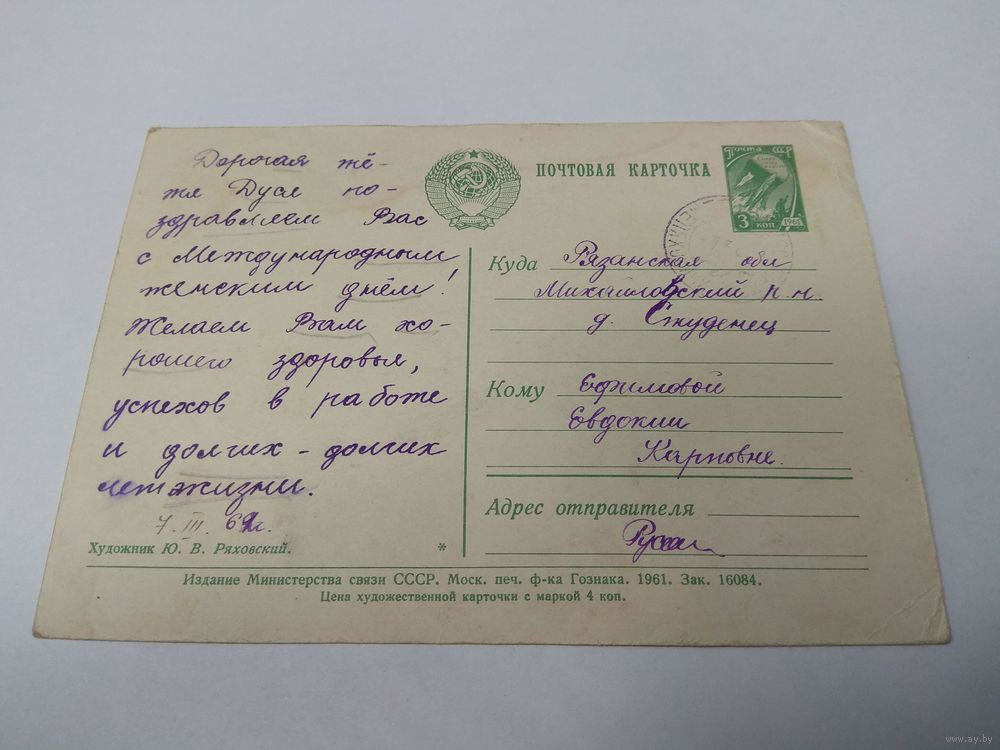 Дорогая тё-
тя Дуся по-
здравляем Вас
с Международным
женским днём!
Желаем Вам хо-
рошего здоровья,
успехов в работе
и долгих - долгих
лет жизни.
7. III. 6 г.
Художник Ю. В. Ряховский.
*
ПОЧТОВАЯ КАРТОЧКА
Почта СССР
3 коп. 1961
Куда Рязанская обл
Михайловский р-н.
д. Студенец
Кому Ефимовой
Евдокии
Карповне.
Адрес отправителя
Издание Министерства связи СССР. Моск. печ. ф-ка Гознака. 1961. Зак. 16084.
Цена художественной карточки с маркой 4 коп.
www.ay.by